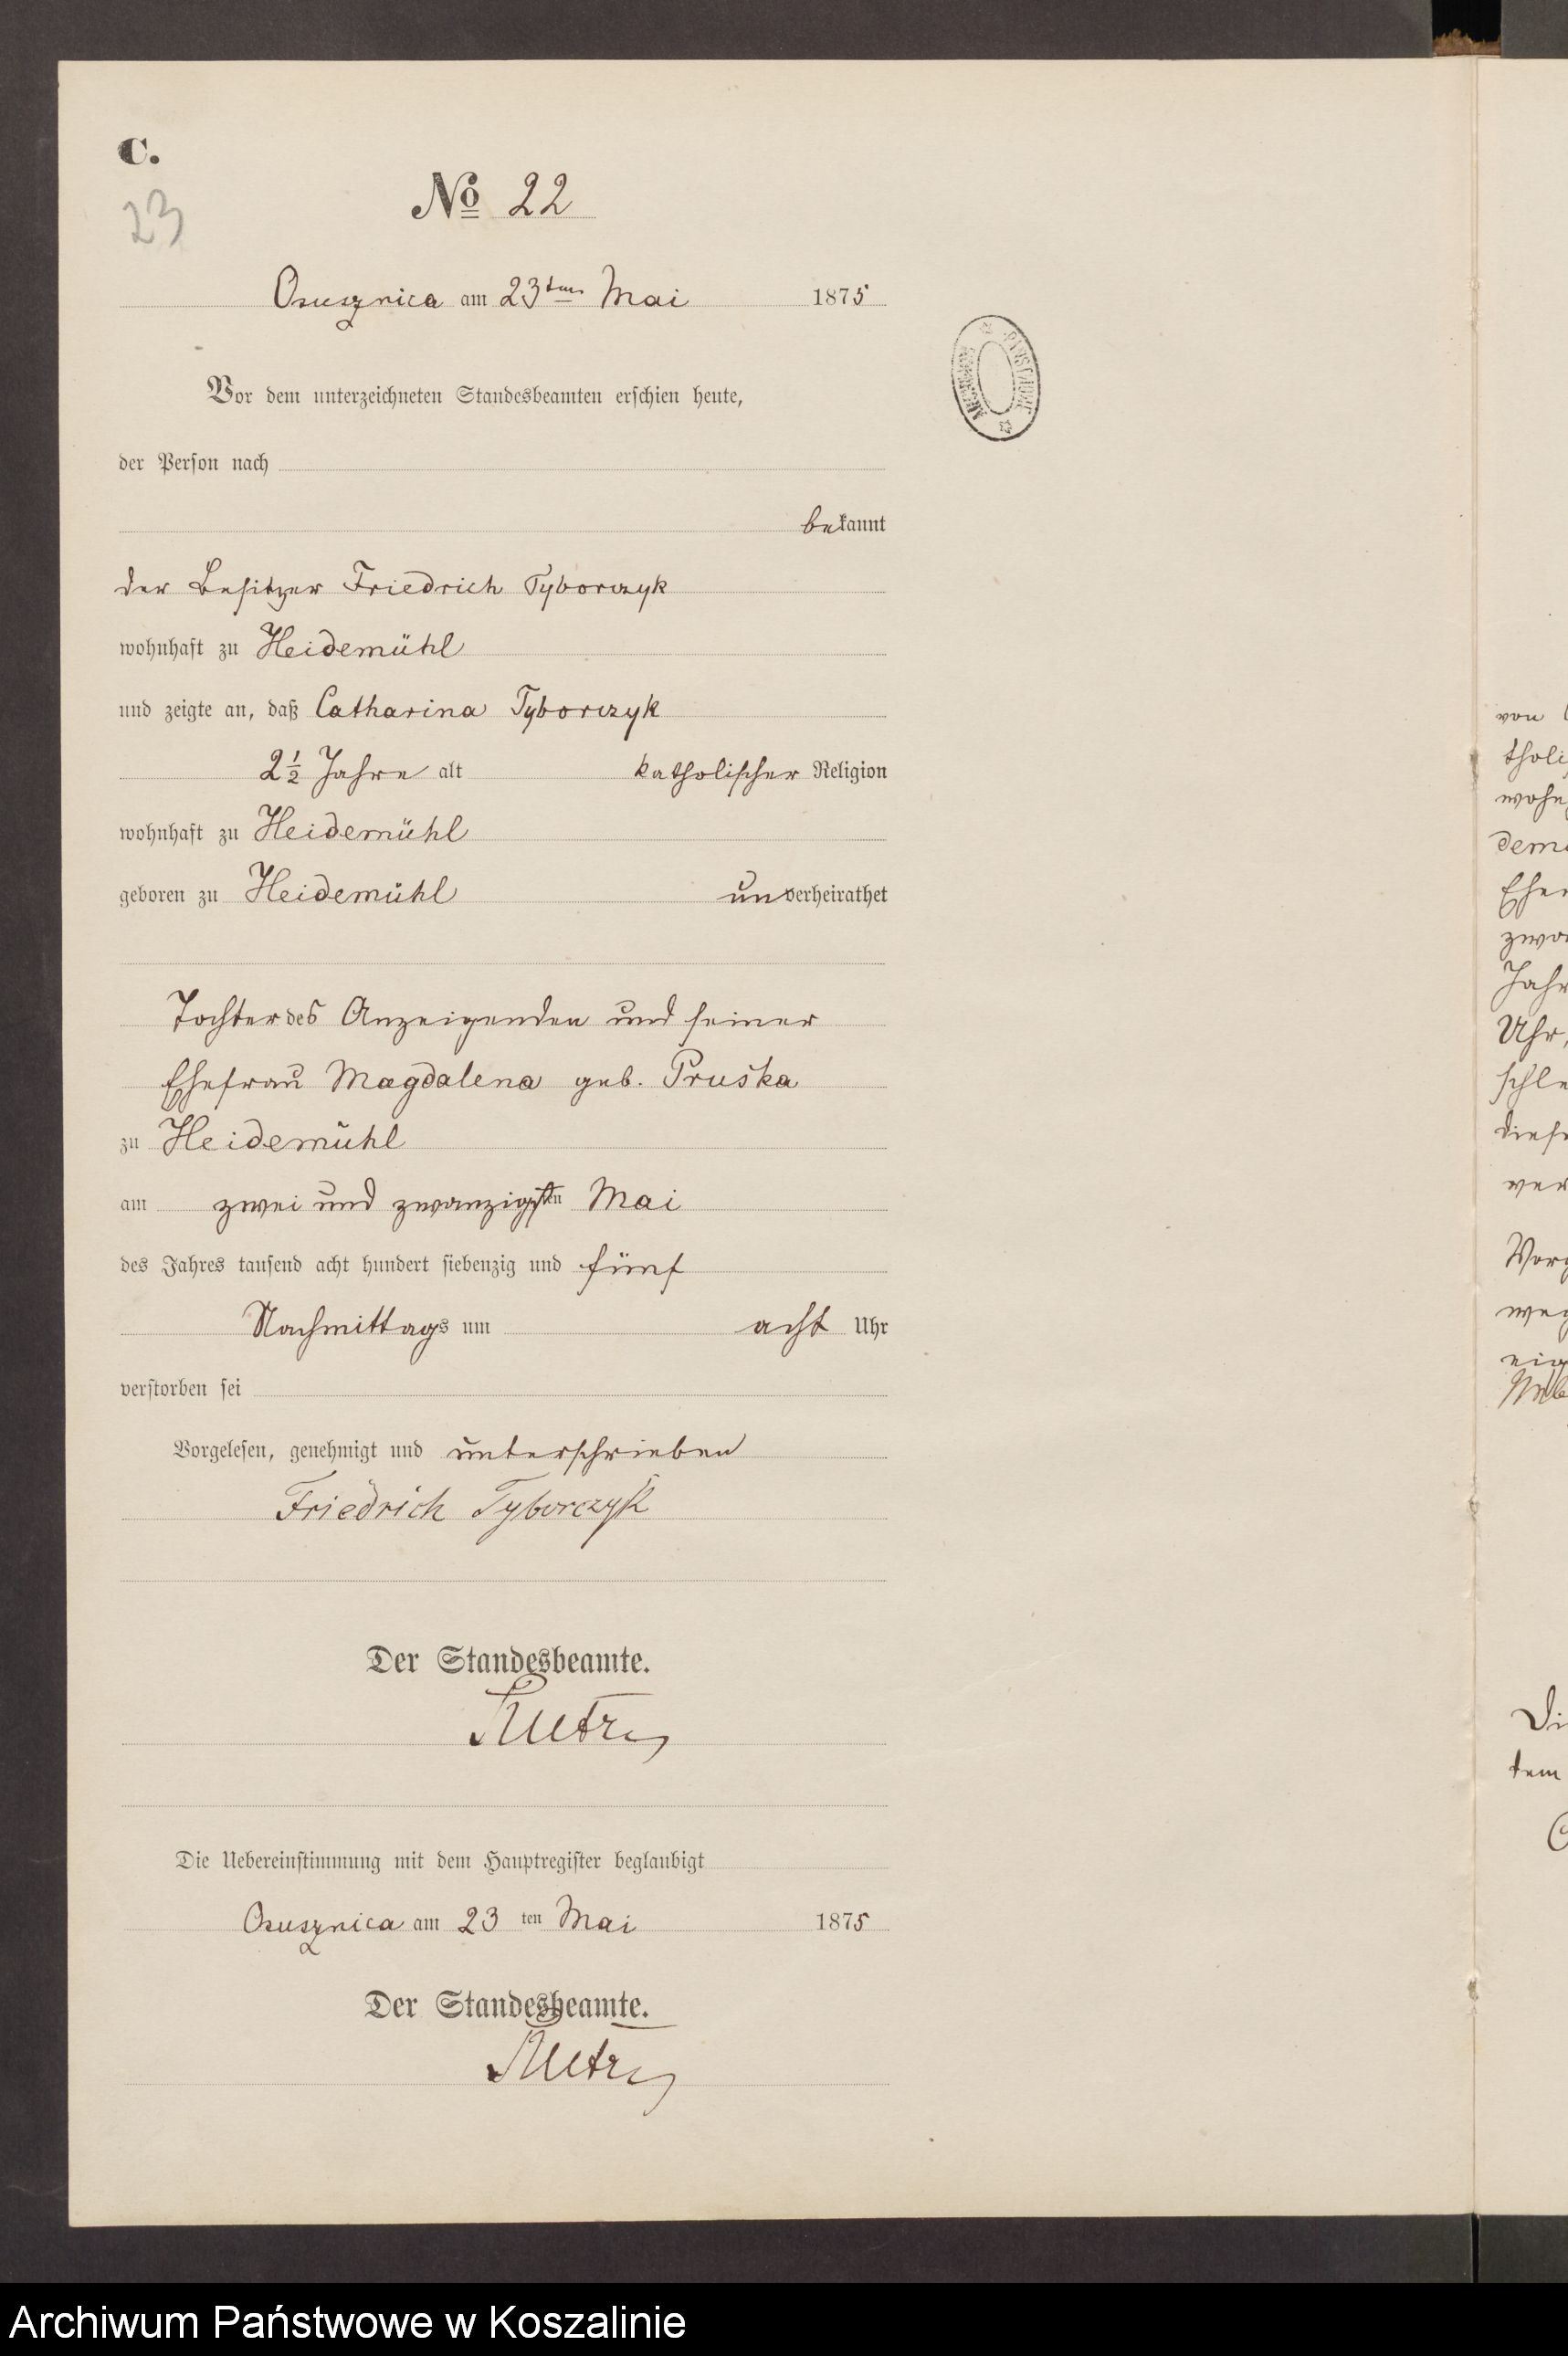 C.
23
No 22
Osusznica am 23ten Mai 1875
Vor dem unterzeichneten Standesbeamten erschien heute,
der Person nach
bekannt
der Besitzer Friedrich Tyborczyk
wohnhaft zu Heidemühl
und zeigte an, daß Catharina Tyborczyk
2½ Jahre alt katholischer Religion
wohnhaft zu Heidemühl
geboren zu Heidemühl unverheirathet
Tochter des Anzeigenden und seiner
Ehefrau Magdalena geb. Pruska
zu Heidemühl
am zwei und zwanzigsten Mai
des Jahres tausend acht hundert siebenzig und fünf
Nachmittags um acht Uhr
verstorben sei
Vorgelesen, genehmigt und unterschrieben
Friedrich Tyborczyk
Der Standesbeamte.
Die Uebereinstimmung mit dem Hauptregister beglaubigt
Osusznica am 23 ten Mai 1875
Der Standesbeamte.
von
Uhr,
Archiwum Państwowe w Koszalinie